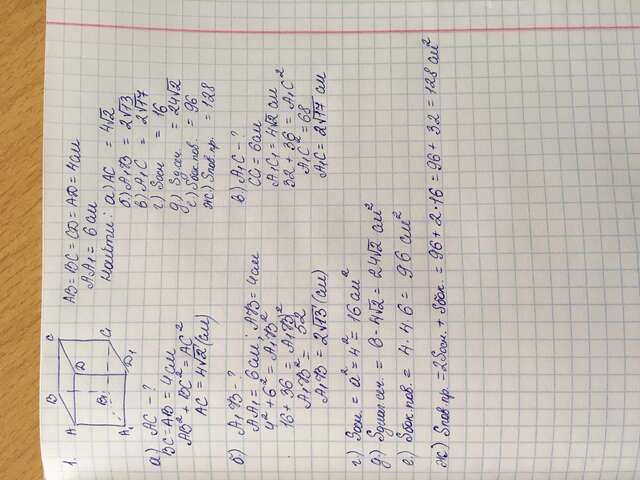 1.
B C
A D
B₁ C₁
A₁ D₁
AB = BC = CD = AD = 4см
AA₁ = 6см
Найти: а) AC = 4√2
б) A₁B = 2√13
в) A₁C = 2√17
г) Sосн = 16
д) Sд.сеч. = 24√2
е) Sбок.пов. = 96
ж) Sпов.пр. = 128
а) AC - ?
BC = AB = 4см
AB² + BC² = AC²
AC = 4√2 (см)
б) A₁B - ?
AA₁ = 6см; AB = 4см
4² + 6² = A₁B²
16 + 36 = A₁B²
A₁B² = 52
A₁B = 2√13 (см)
в) A₁C - ?
CC₁ = 6см
A₁C₁ = 4√2 см
32 + 36 = A₁C²
A₁C² = 68
A₁C = 2√17 см
г) Sосн. = a² = 4² = 16 см²
д) Sдиаг.сеч. = 6 · 4√2 = 24√2 см²
е) Sбок.пов. = 4 · 4 · 6 = 96 см²
ж) Sпов.пр. = 2Sосн. + Sбок. = 96 + 2 · 16 = 96 + 32 = 128 см²